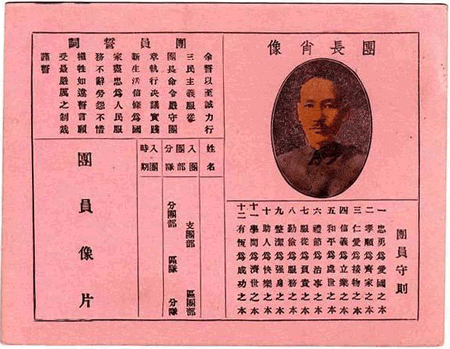 團長肖像
團員守則
一忠勇爲愛國之本
二孝順爲齊家之本
三仁愛爲接物之本
四信義爲立業之本
五和平爲處世之本
六禮節爲治事之本
七服從爲負責之本
八勤儉爲服務之本
九整潔爲强身之本
十助人爲快樂之本
十一學問爲濟世之本
十二有恆爲成功之本
團員誓詞
余誓以至誠力行
三民主義服從
團長命令嚴守團
章執行決議實踐
新生活信條爲國
家盡忠爲人民服
務不辭勞怨不惜
犧牲如違誓言願
受最嚴厲之制裁
謹誓
姓名
入團
分隊
支團部 區團部
分團部 區隊 分隊
入團
時期
團員像片